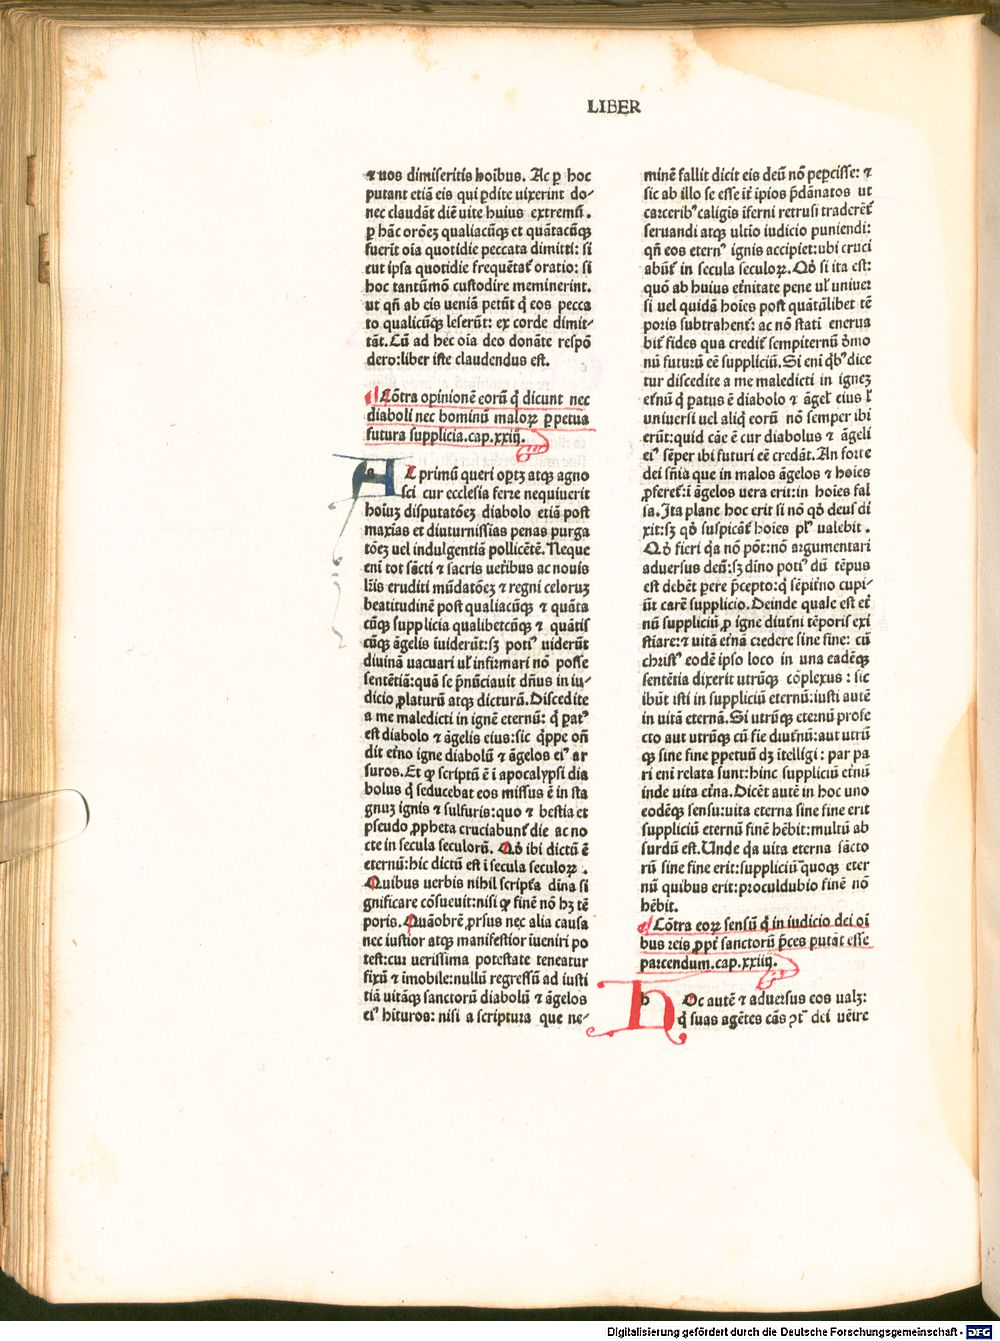 LIBER
⁊ uos dimiseritis hoībus. Ac ꝑ hoc
putant etiā eis qui ꝑdite uixerint do-
nec claudāt diē uite huius extremū.
ꝑ hāc orōeꝫ qualiacūqꝫ et quātacūqꝫ
fuerīt oīa quotidie peccata dimitti: si
cut ipsa quotidie frequētat᷑ oratio: si
hoc tantūmō custodire meminerint.
ut qn̄ ab eis ueniā petūt q̇ eos pecca
to qualicūqꝫ leserūt: ex corde dimit-
tāt. Cū ad hec oīa deo donāte respō
dero:liber iste claudendus est.
Cōtra opinionē eorū q̇ dicunt nec
diaboli nec hominū maloꝝ ꝑpetua
futura supplicia.cap.xxiij.
AC primū queri oportꝫ atqꝫ agno
sci cur ecclesia ferre nequiuerit
hoīuꝫ disputatōeꝫ diabolo etiā post
maxīas et diuturnissīas penas purga
tōeꝫ uel indulgentiā pollicētē. Neque
enī tot sācti ⁊ sacris ueterībus ac nouis
lr̄is eruditi mūdatōeꝫ ⁊ regni celoruꝫ
beatitudinē post qualiacūqꝫ ⁊ quāta
cūqꝫ supplicia qualibetcūqꝫ ⁊ quātis
cūqꝫ āgelis īuiderūt:sꝫ potiꝰ uiderūt
diuinā uacuari ul᷑ infirmari nō posse
sentētiā:quā se p̄nūciauit dn̄us in iu-
dicio ꝓlaturū atqꝫ dicturū.Discedite
a me maledicti in ignē eternū: q̇ parat᷒
est diabolo ⁊ āgelis eius:sic q̇ppe on̄
dit et̄no igne diabolū ⁊ āgelos eiꝰ ar
suros.Et ꝙ scriptū ē ī apocalypsi dia
bolus q̇ seducebat eos missus ē in sta
gnuꝫ ignis ⁊ sulfuris:quo ⁊ bestia et
pseudo ꝓpheta cruciabunt᷑ die ac no
cte in secula seculorū. Qđ ibi dictū ē
eternū:hic dictū est ī secula seculoꝝ.
Quibus uerbis nihil script̄a dīna si
gnificare cōsueuit:nisi ꝙ finē nō hꝫ tē
poris.Quāobrē ꝓrsus nec alia causa
nec iustior atqꝫ manifestior īueniri po
test:cur uerissima potestate teneatur
fixū ⁊ īmobile:nullū regressū ad iusti
tiā uitāqꝫ sanctorū diabolū ⁊ āgelos
eiꝰ hīturos: nisi a scriptura que ne-
minē fallit dicit eis deū nō peꝑcisse: ⁊
sic ab illo se esse īt᷑ īpios p̄dānatos ut
carceribꝰ caligīs īferni retrusi traderēt᷑
seruandi atqꝫ ultīo iudicio puniendi:
qn̄ eos eternꝰ ignis accipiet:ubi cruci
abūt᷑ in secula seculoꝝ.Qđ si ita est:
quō ab huius et̄nitate pene ul᷑ uniuer
si uel quidā hoīes post quātūlibet tē
poris subtrahent᷑: ac nō statī enerua
bit᷑ fides qua credit᷑ sempiternū demo
nū futurū eē suppliciū.Si enī q̇bꝰ dice
tur discedite a me maledicti in igneꝫ
et̄nū q̇ paratus ē diabolo ⁊ āgel᷑ eius l᷑
uniuersi uel aliq̇ eorū nō semper ibi
erūt:quid cāe ē cur diabolus ⁊ āgeli
eiꝰ sēper ibi futuri eē credāt. An forte
dei sn̄ia que in malos āgelos ⁊ hoīes
ꝓferet᷑:ī āgelos uera erit:in hoīes fal
sa.Ita plane hoc erit si nō qđ deus di
xit:sꝫ qđ suspicāt᷑ hoīes plꝰ ualebit.
Qđ fieri q̇a nō pōt:nō argumentari
aduersus deū:sꝫ dīno potiꝰ dū tēpus
est debēt ꝑere p̄cepto:q̇ sēpit̄no cupi-
ūt carē supplicio.Deinde quale est et̄
nū suppliciū ꝓ igne diut̄ni tēporis exi
stiare:⁊ uitā et̄nā credere sine fine: cū
christꝰ eodē ipso loco in una eadēqꝫ
sentētia dixerit utrūqꝫ cōplexus : sic
ibūt isti in suppliciū eternū:iusti autē
in uitā eternā.Si utrūqꝫ eternū profe
cto aut utrūqꝫ cū fīe diut̄nū:aut utrū
qꝫ sine fine ꝑpetuū dꝫ ītelligi : par pa
ri enī relata sunt:hinc suppliciū et̄nū
inde uita et̄na.Dicēt autē in hoc uno
eodēqꝫ sensu:uita eterna sine fine erit
suppliciū eternū finē hēbit:multū ab
surdū est.Unde q̇a uita eterna sācto
rū sine fine erit:suppliciū quoqꝫ eter
nū quibus erit:proculdubio finē nō
hēbit.
Cōtra eoꝝ sensū q̇ in iudicio dei oī
bus reis ꝓpt᷑ sanctorū p̄ces putāt esse
parcendum.cap.xxiiij.
hOc autē ⁊ aduersus eos ualꝫ:
q̇ suas agētes cās ꝯt᷑ dei uēire
Digitalisierung gefördert durch die Deutsche Forschungsgemeinschaft - DFG